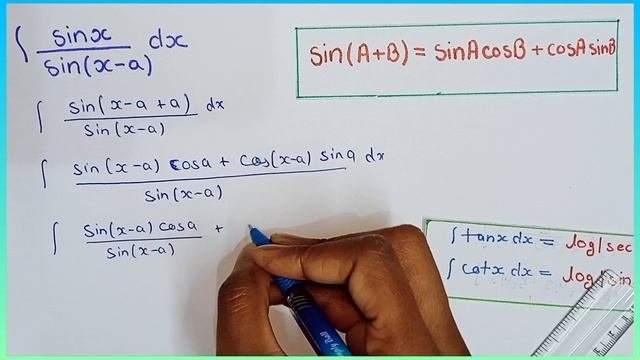 ∫ sinx / sin(x-a) dx
sin(A+B) = sinAcosB + cosA sinB
∫ sin(x-a+a) / sin(x-a) dx
∫ sin(x-a) cosa + cos(x-a) sina / sin(x-a) dx
∫ sin(x-a) cosa / sin(x-a) +
∫tanx dx = log|sec
∫cotx dx = log|sin